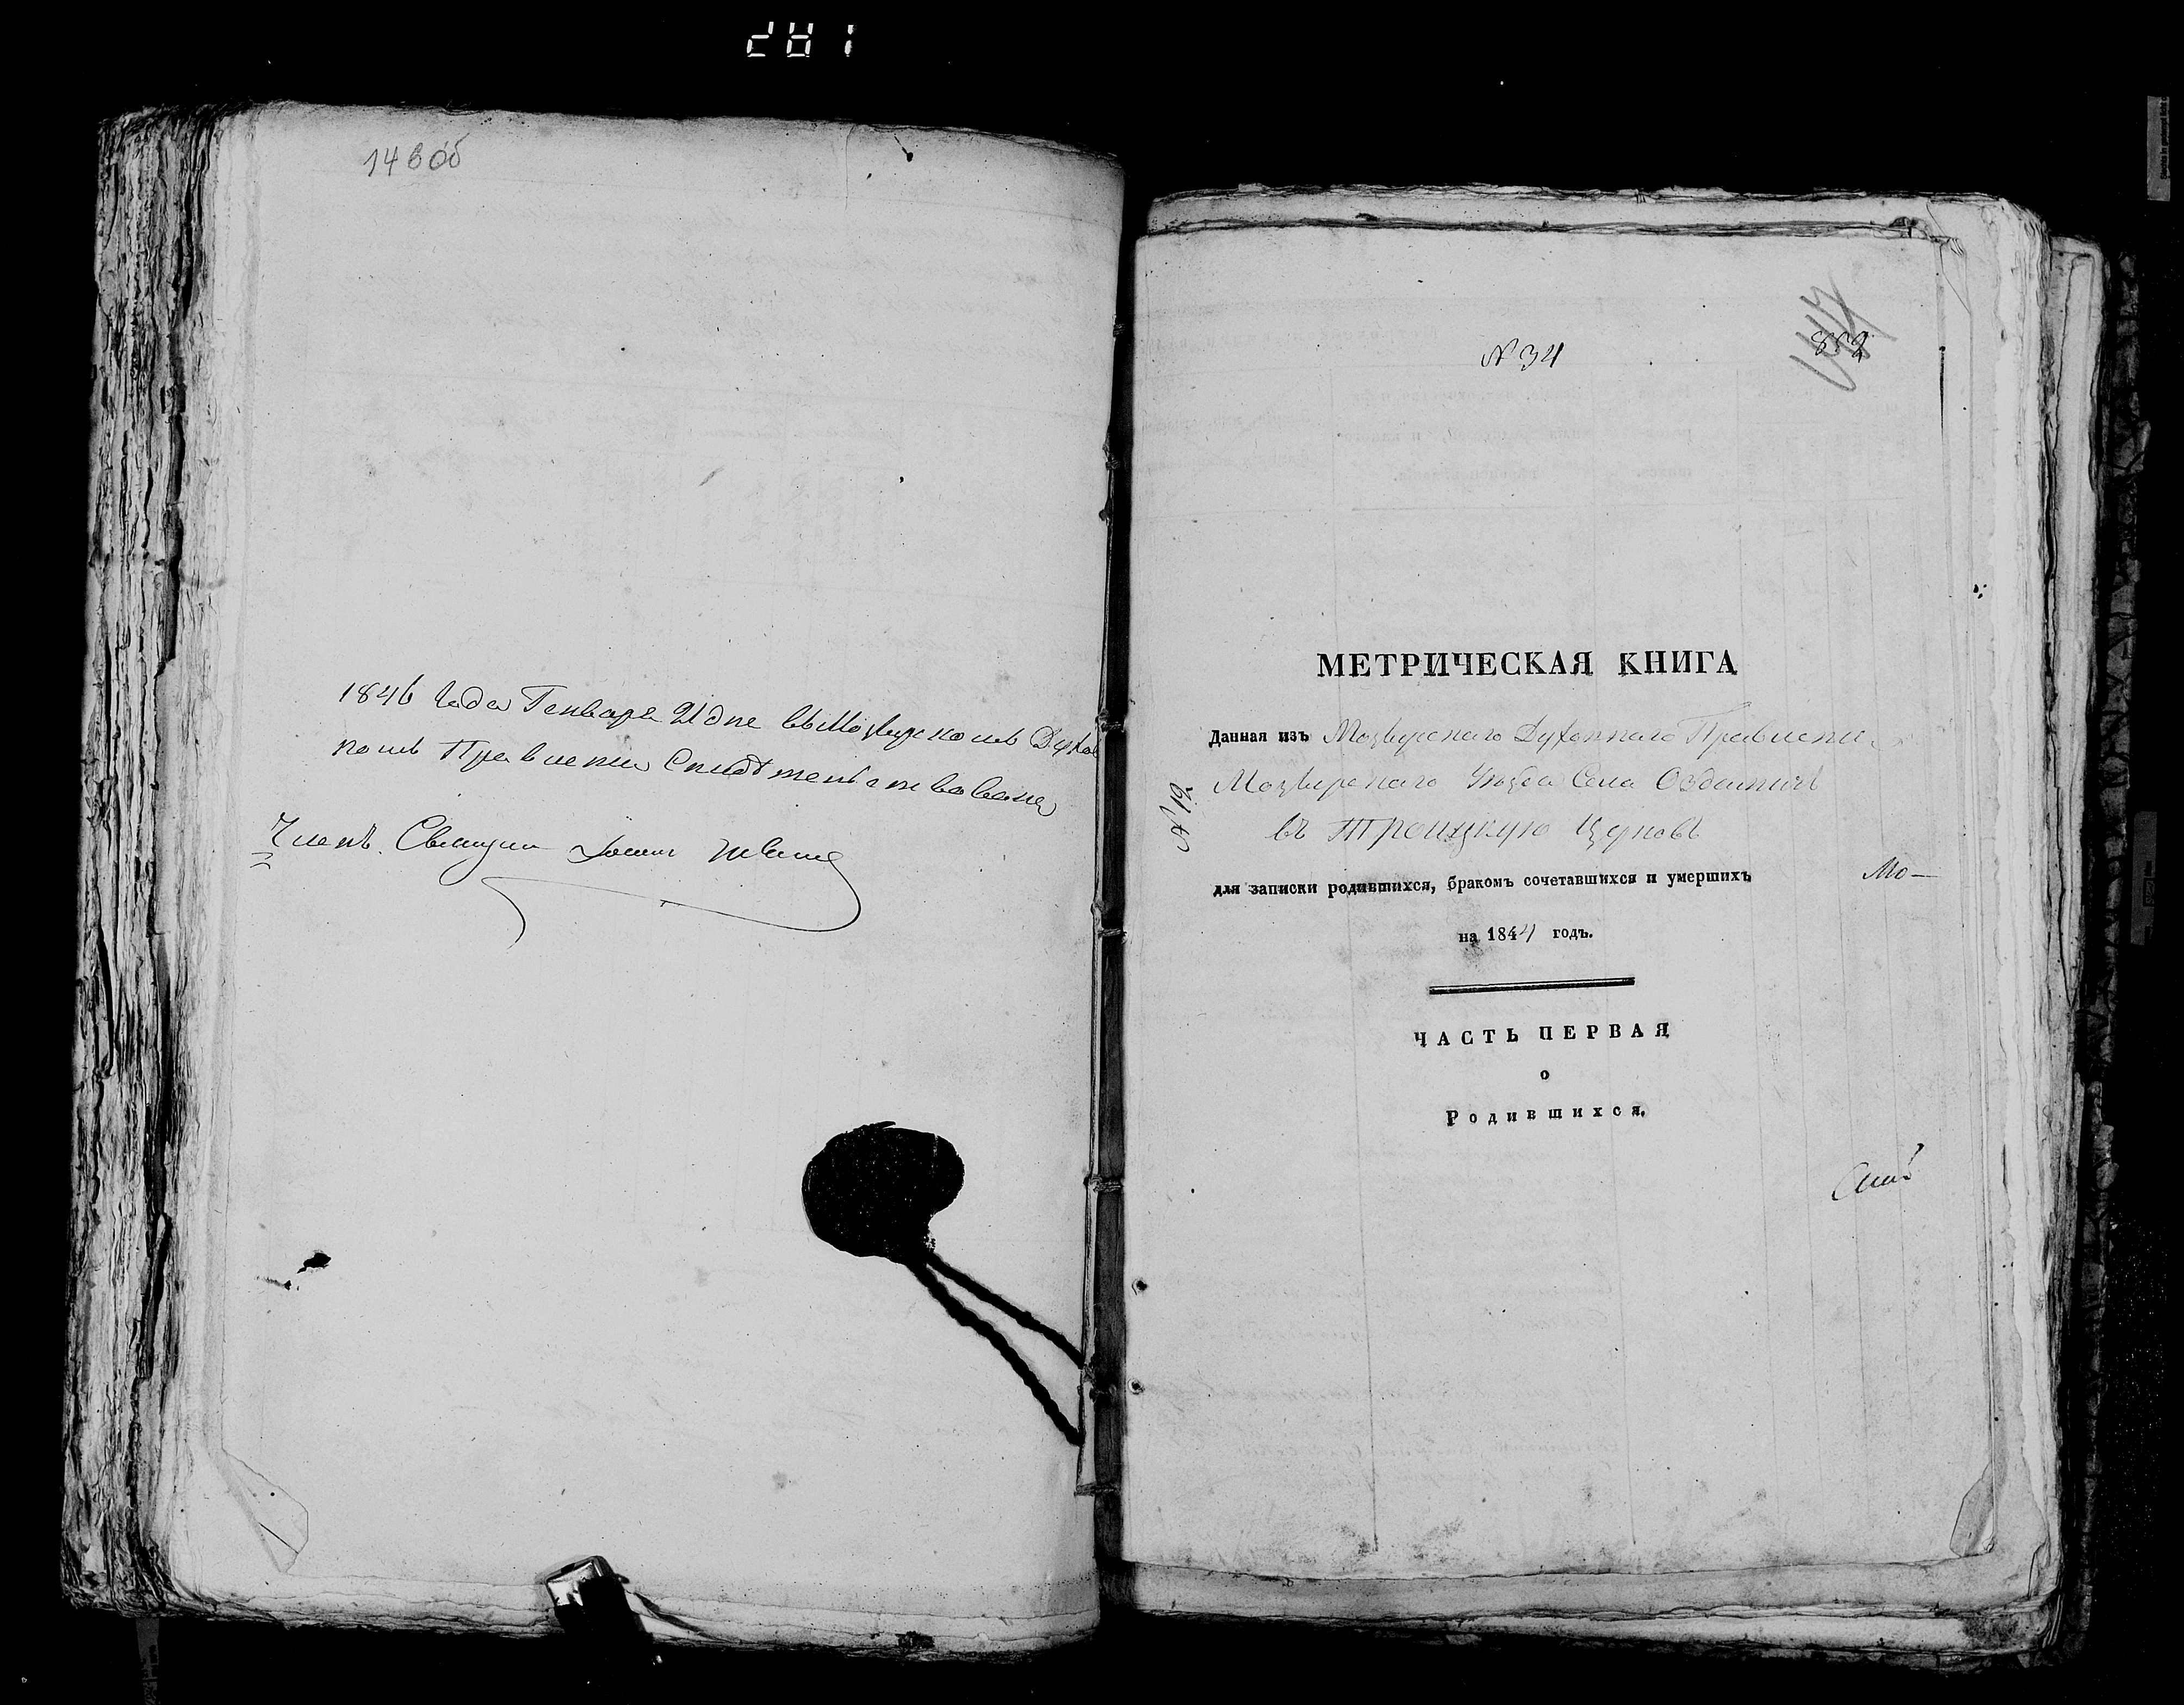 14 об
1846 Года Генваря 21 дне въ Мозырскомъ Духов
номъ Правлении Свидетельствована
Членъ. Священник Иоанн
№ 34
МЕТРИЧЕСКАЯ КНИГА
Данная изъ Мозырскаго Духовнаго Правления
Мозырскаго Уезда Села Оздамичъ
въ Троицкую Церковь
для записки родившихся, бракомъ сочетавшихся и умершихъ
Мо—
на 1844 годъ.
ЧАСТЬ ПЕРВАЯ
о
Родившихся.